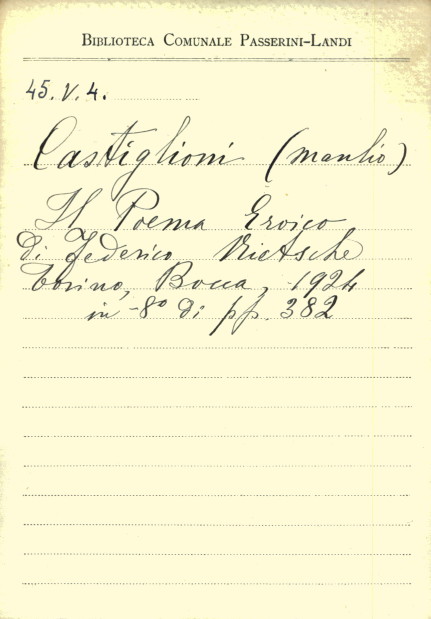 BIBLIOTECA COMUNALE PASSERINI-LANDI
45. V. 4.
Castiglioni (manlio)
Il Poema Eroico
di Federico Nietsche
Torino, Bocca, 1924
in -8º di pp. 382